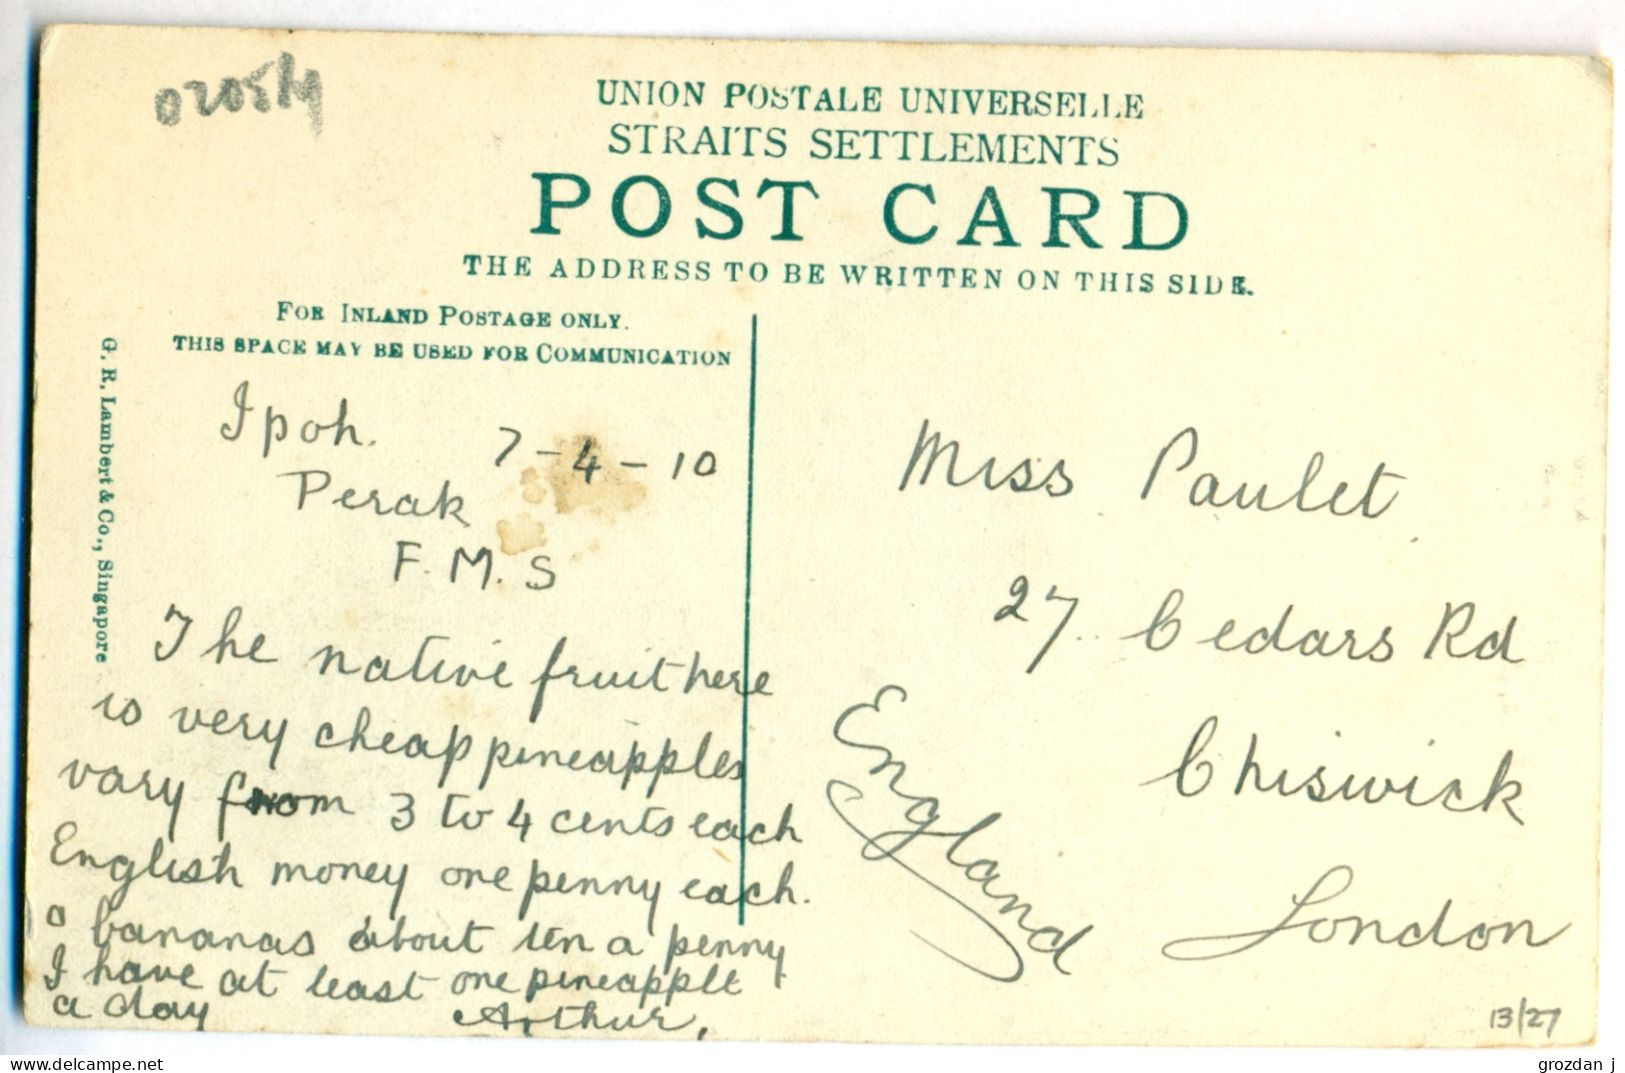 02054
UNION POSTALE UNIVERSELLE
STRAITS SETTLEMENTS
POST CARD
THE ADDRESS TO BE WRITTEN ON THIS SIDE.
FOR INLAND POSTAGE ONLY.
THIS SPACE MAY BE USED FOR COMMUNICATION
G. R. Lambert & Co., Singapore
Ipoh. 7-4-10
Perak
F. M. S
The native fruit here
is very cheap pineapples
vary from 3 to 4 cents each
English money one penny each.
a bananas about ten a penny
I have at least one pineapple
a day Arthur,
Miss Paulet
27 Cedars Rd
Chiswick
London
England
13/27
delcampe.net
grozdan j